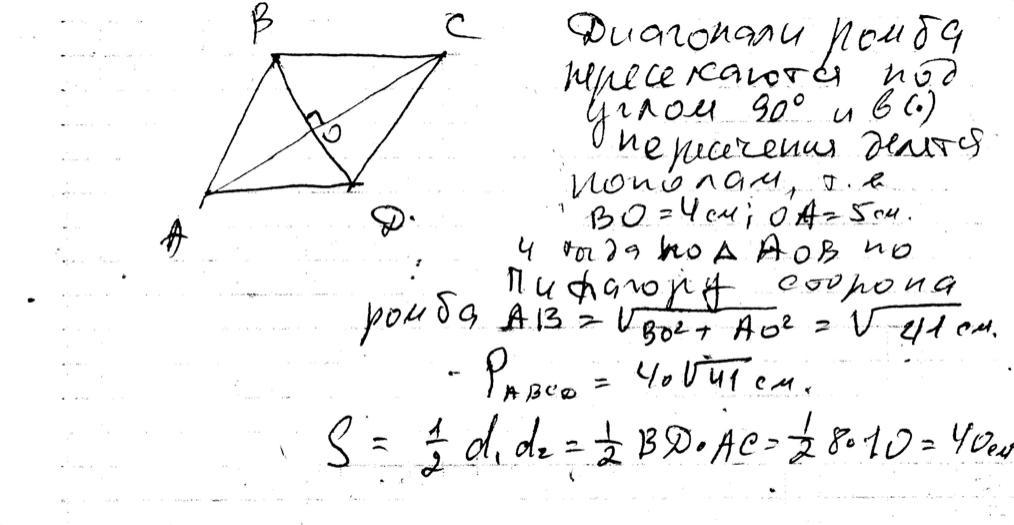 B C
Диагонали ромба
пересекаются под
углом 90° и в (·)
O пересечения делятся
пополам, т.е
BO = 4 см; OA = 5 см.
A D.
и тогда по Δ AOB по
Пифагору сторона
ромба AB = √BO² + AO² = √41 см.
P ABCD = 4·√41 см.
S = 1/2 d₁ d₂ = 1/2 BD·AC = 1/2 8·10 = 40 см